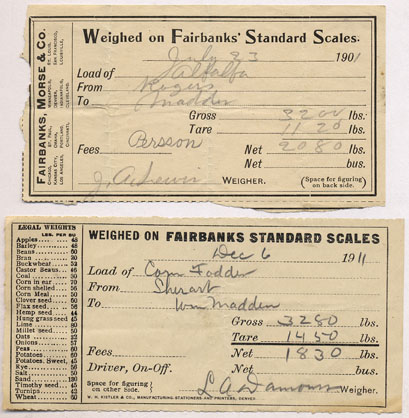 FAIRBANKS, MORSE & CO.
Weighed on Fairbanks' Standard Scales.
July 23 1901
Load of Alfalfa
From Rogers
To Madden
Gross 3200 lbs.
Tare 1120 lbs.
Fees Persson Net 2080 lbs.
Net bus.
WEIGHER. (Space for figuring on back side.)
LEGAL WEIGHTS
LBS. PER BU
Apples 48
Barley 48
Beans 60
Bran 20
Buckwheat
Castor Beans 46
Coal
Corn in ear 70
Corn shelled 56
Corn Meal 50
Clover seed 60
Flax seed 56
Hemp seed 44
Hung grass seed
Lime 80
Millet seed 50
Oats 32
Onions 57
Peas 60
Potatoes 60
Potatoes, Sweet
Rye 56
Salt
Sand
Timothy seed 45
Turnips
Wheat 60
WEIGHED ON FAIRBANKS STANDARD SCALES
Dec 6 1911
Load of Corn Fodder
From
To Wm Madden
Gross 3280 lbs.
Tare 1450 lbs.
Fees Net 1830 lbs.
Driver, On-Off. Net bus.
Space for figuring on other side.
L. A. Weigher.
W. H. KISTLER & CO., MANUFACTURING STATIONERS AND PRINTERS, DENVER.